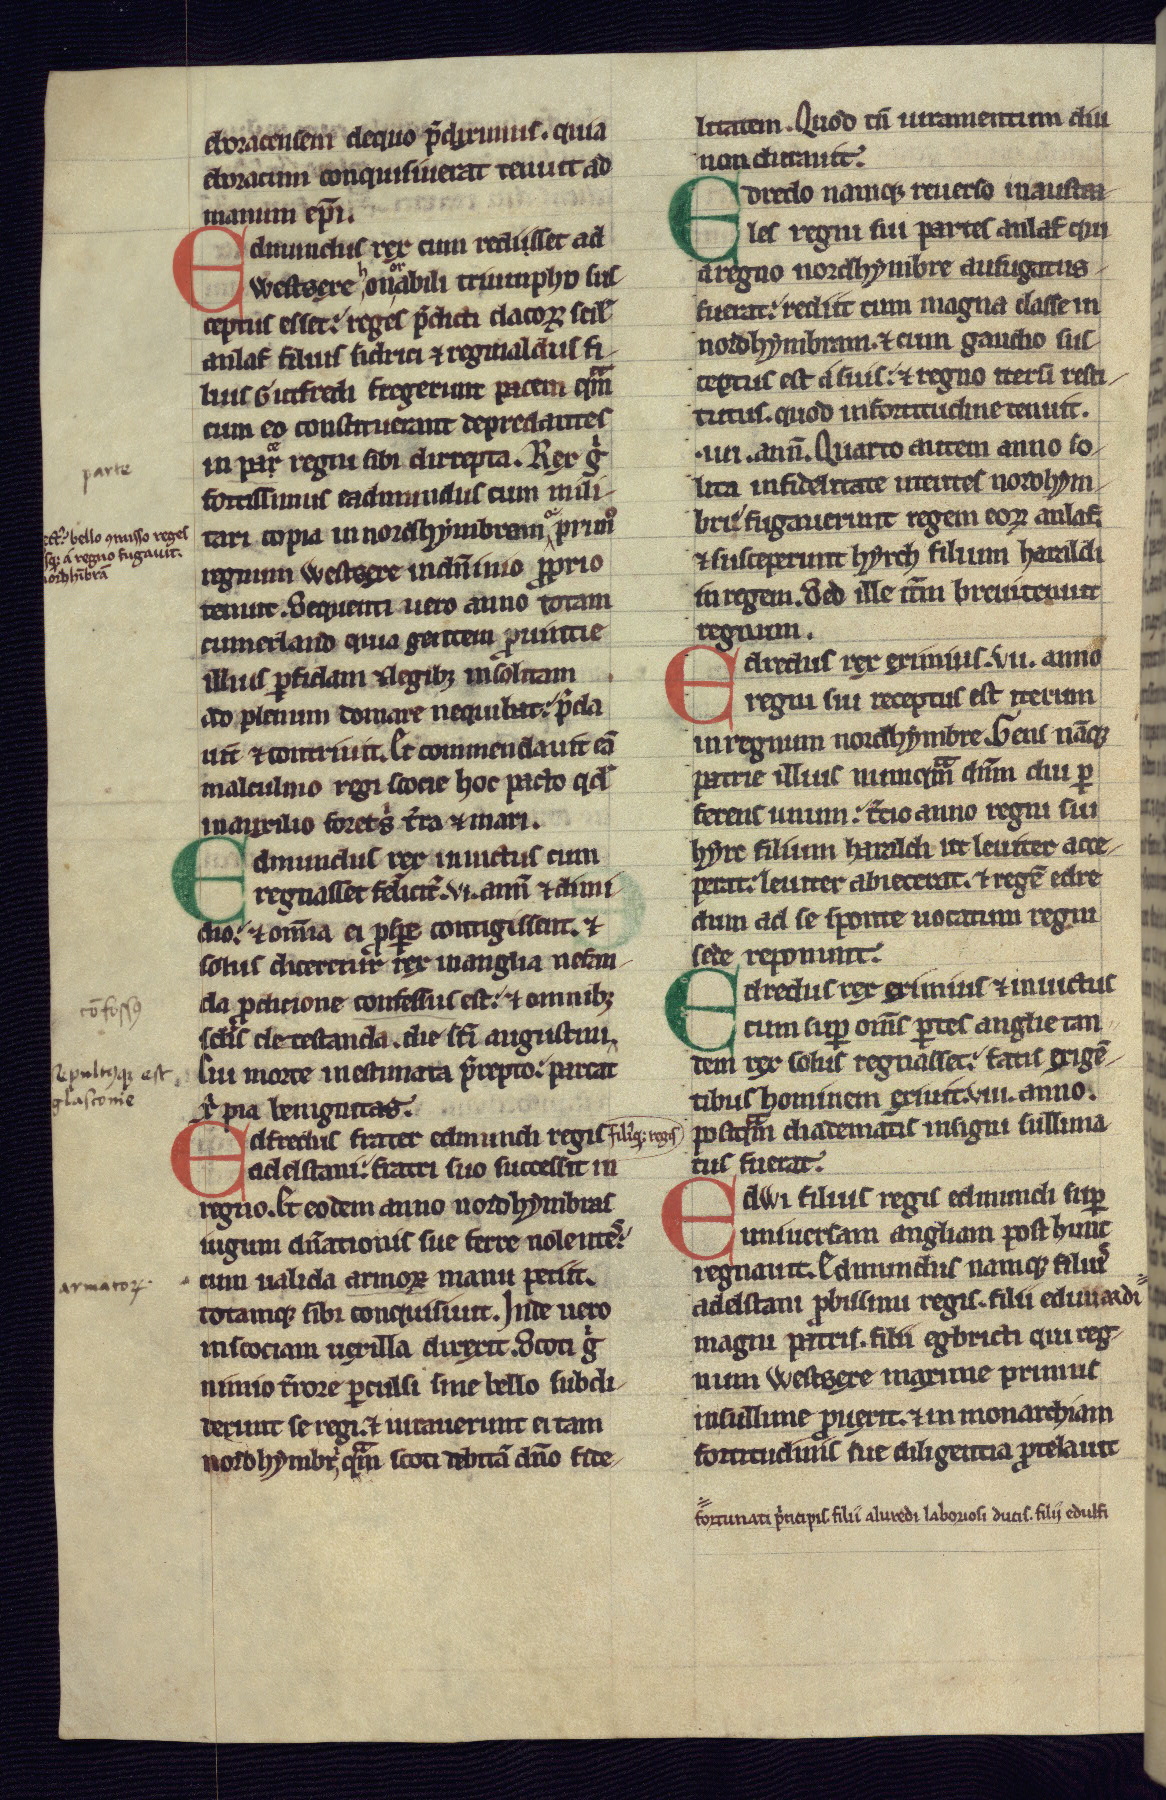 eboracensem de quo p̄diximus. quia
eboracum conquisiuerat tenuit ad
manum ep̄i.
Edmundus rex cum redisset ad
Westsexe honorabili triumpho sus
ceptus esset: reges p̄dicti dacoꝝ scil̄
anlaf filius sidrici ⁊ reginaldus fi-
lius Gutfredi fregerunt pacem qm̄
cum eo constituerant depredantes
in parte regni sibi directa. Rex g̊
fortissimus eadmundus cum mili-
tari copia in nordhymbram primo
regnum Westsexe in dn̄inio proprio
tenuit. Sequenti uero anno totam
cumerland quia gentem prouintie
illius perfidam ⁊ legibꝫ insolitam
ad plenum domare nequibat: p̄da
uit ⁊ contriuit. Et commendauit eā
malculmo regi scocie hoc pacto qd̄
in auxilio foret s̄ t̄ra ⁊ mari.
Edmundus rex inuictus cum
regnasset felicit̄ .vi. ann̄ ⁊ dimi
dio: ⁊ om̄ia ei prospere contigissent. ⁊
solus diceretur rex in anglia nefan-
da proditione confessus est: ⁊ omnibꝫ
sc̄lis de testanda. die sc̄i augustini
Sui morte inestimata p̄repto: parcat
x̄ pia benignitas.
Edfredus frater edmundi regis filiꝗ regis
adelstani: fratri suo successit in
regno. Et eodem anno nordhymbras
iugum dn̄ationis sue ferre nolentes:
cum ualida armoꝝ manu petiit.
totamqꝫ sibi conquisiuit. Inde uero
in scociam uexilla direxit. Scoti g̊
nimio t̄rore perculsi sine bello subdi-
derunt se regi. ⁊ iurauerunt ei tam
nordhymbr̄ qm̄ scoti debitā dn̄o fide-
parte
bello ɔmisso reges
a regno fugauit.
cōfossꝰ
Sepultusqꝫ est
glasconie
armatoꝝ.
litatem. Quod tn̄ iuramentum diu
non durauit.
Edredo namqꝫ reuerso in austra
les regni sui partes anlaf qui
a regno nordhymbre aufugatus
fuerat: rediit cum magna classe in
nordhymbram. ⁊ cum gaudio sus-
ceptus est a suis: ⁊ regno itersū resti-
tutus. quod in fortitudine tenuit.
.iiii. ann̄. Quarto autem anno so-
lita infidelitate utentes nordhym-
bri: fugauerunt regem eoꝝ anlaf.
⁊ susceperunt hyrch filium haraldi
in regem. Sed ille tm̄ breui tenuit
regnum.
Edredus rex eximius .vii. anno
regni sui receptus est iterum
in regnum nordhymbre. Gens nāqꝫ
patrie illius nunqm̄ dn̄m diu per
ferens unum: t̄cio anno regni sui
hyrc filium haraldi ut leuiter acce-
perat: leuiter abiecerat. ⁊ regē edre
dum ad se sponte uocatum regni
sede reponunt.
Edredus rex eximius ⁊ inuictus
cum sup̄ om̄s p̄tes anglie tan
dem rex solus regnasset: fatis exigē-
tibus hominem exiuit .viii. anno.
postqm̄ diadematis insigni sullima
tus fuerat.
Edwi filius regis edmundi sup̄
uniuersam angliam post hunc
regnauit. Edmundus namqꝫ filius
adelstani probissimi regis. filii eduuardi
magni patris. filii egbricti qui reg-
num Westsexe maxime primus
in sullime prouexit. ⁊ in monarchiam
fortitudinis sue diligentia protelauit
fortunati p̄ncipis. filii aluredi laboriosi ducis. filii edulfi